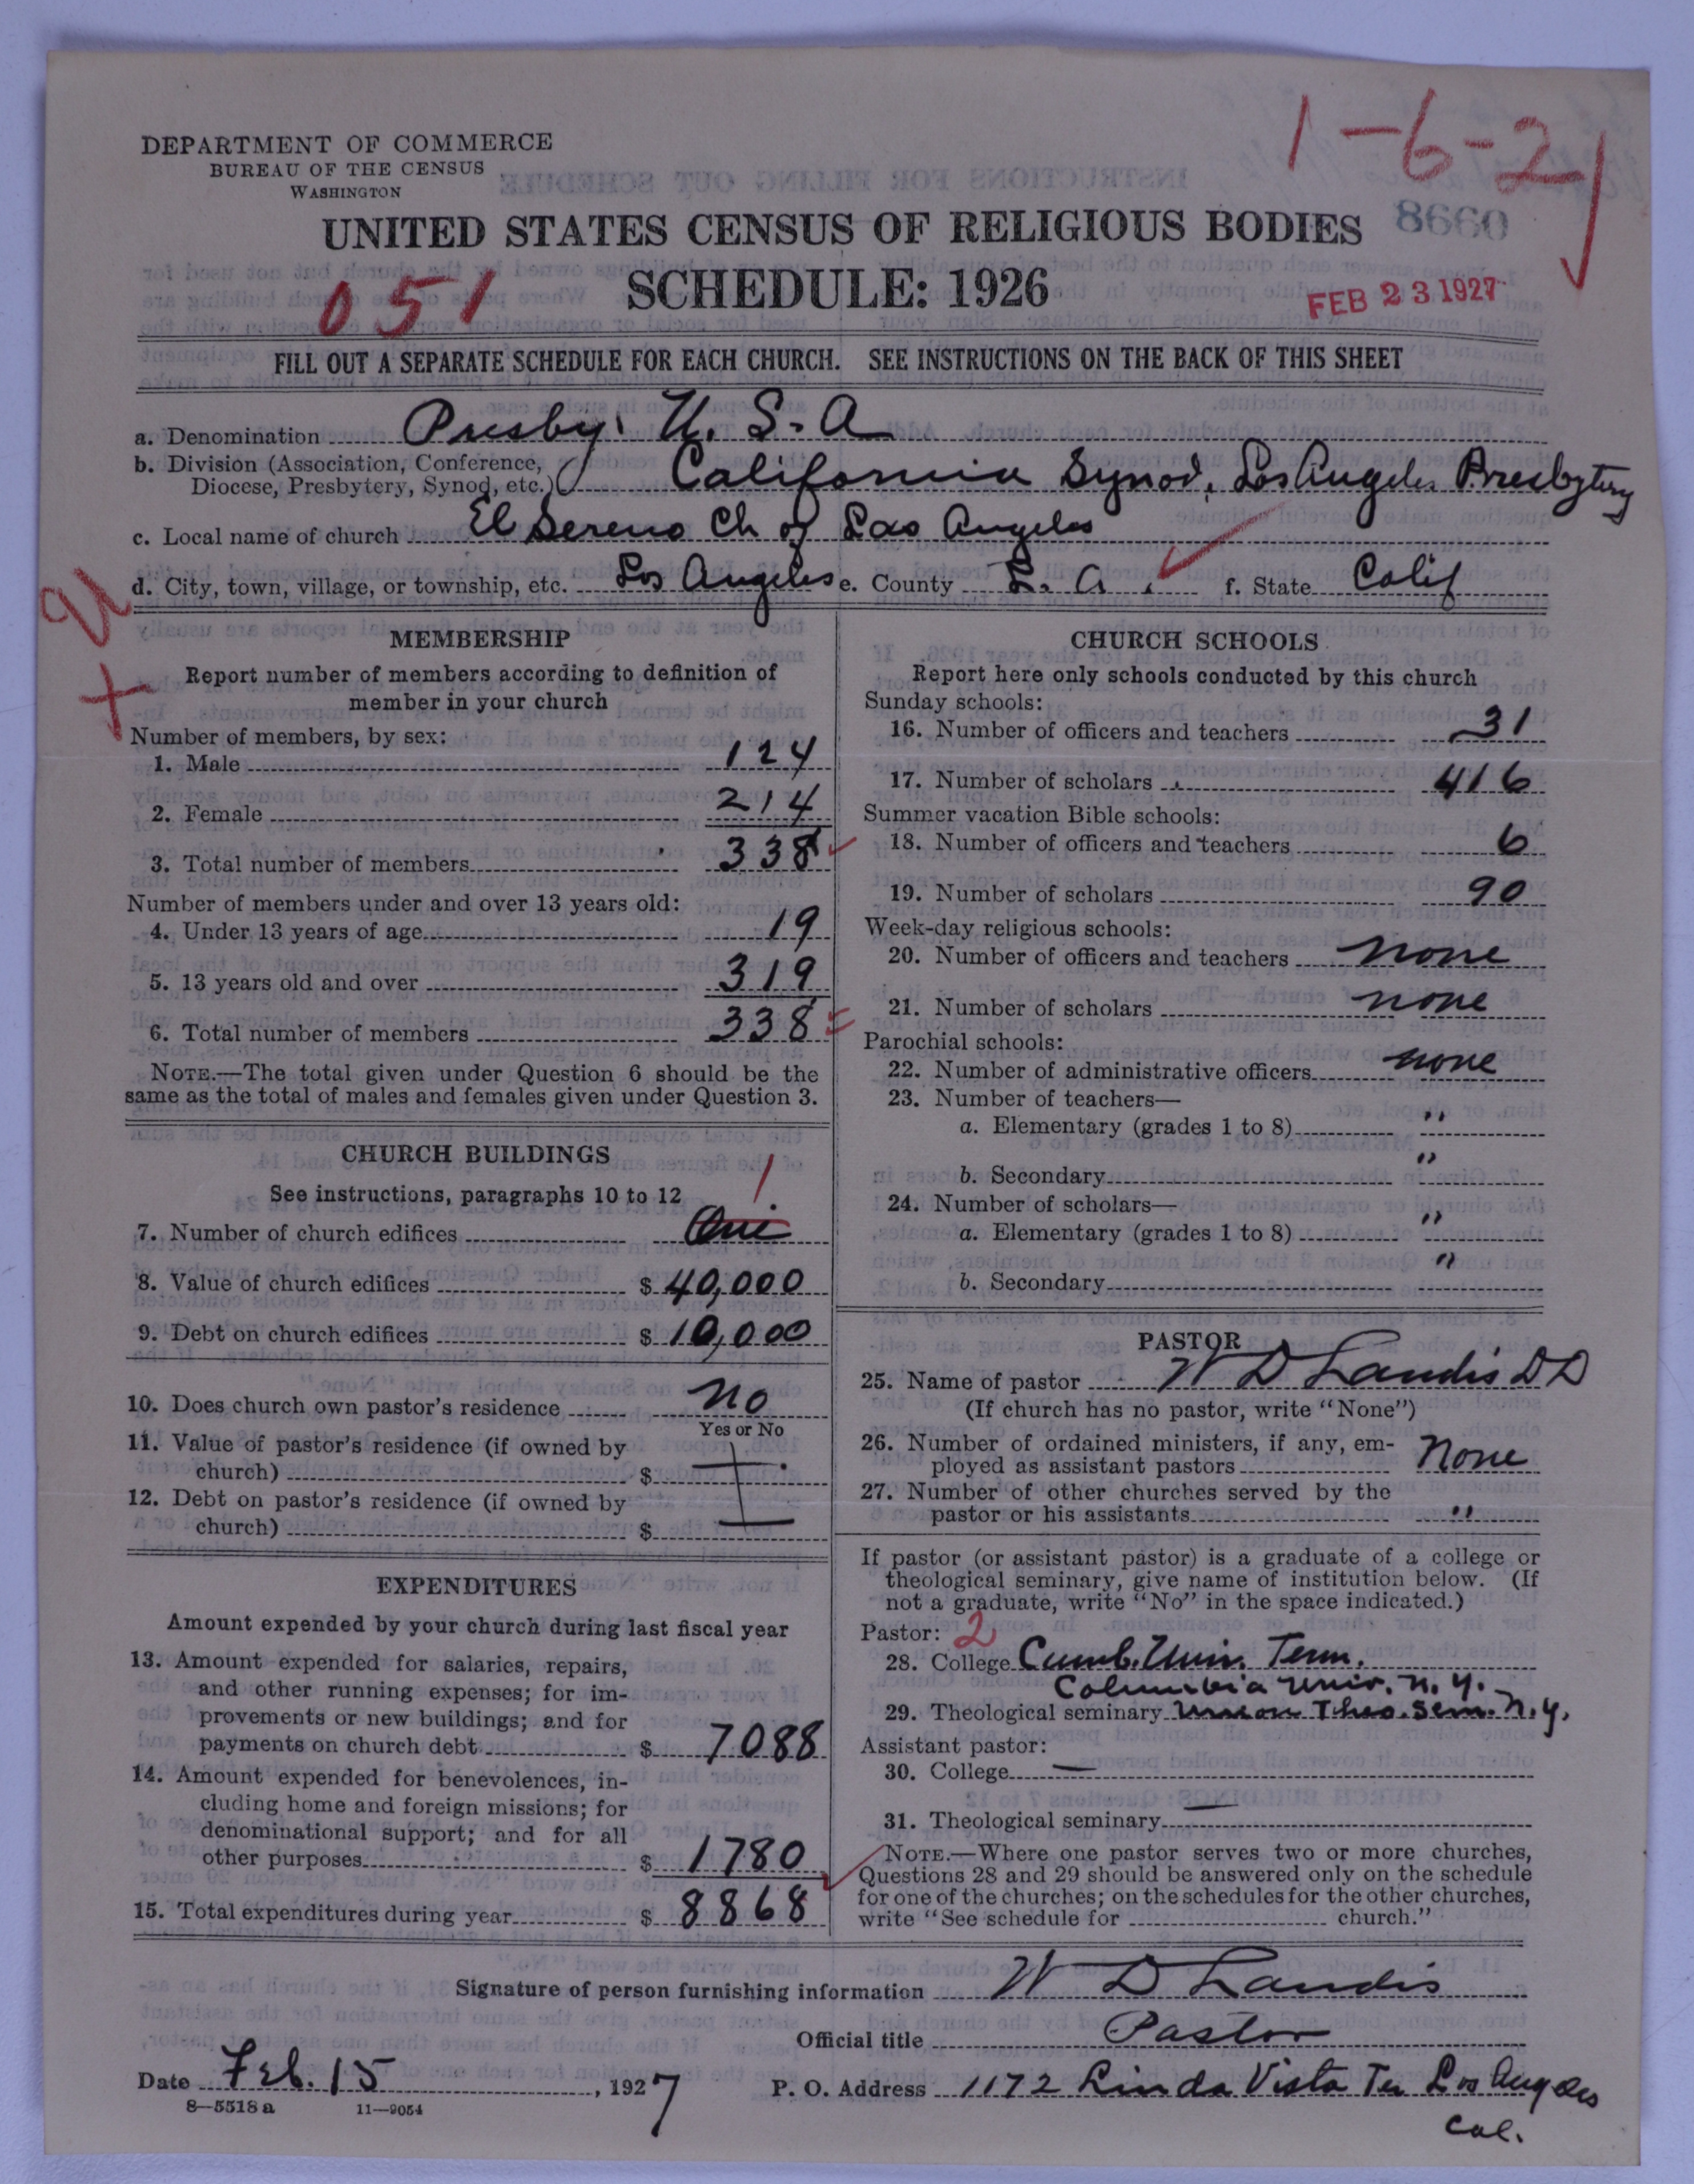 1-6-2
DEPARTMENT OF COMMERCE
BUREAU OF THE CENSUS
WASHINGTON
UNITED STATES CENSUS OF RELIGIOUS BODIES
8660
SCHEDULE: 1926
051
FEB 23 1927
FILL OUT A SEPARATE SCHEDULE FOR EACH CHURCH. SEE INSTRUCTIONS ON THE BACK OF THIS SHEET
a. Denomination Presby. U. S. A
b. Division (Association, Conference, Diocese, Presbytery, Synod, etc.) California Synod, Los Angeles Presbytery
c. Local name of church El Sereno Ch of Los Angeles
d. City, town, village, or township, etc. Los Angeles e. County L. A. f. State Calif
MEMBERSHIP
Report number of members according to definition of
member in your church
Number of members, by sex:
1. Male 124
2. Female 214
3. Total number of members 338
Number of members under and over 13 years old:
4. Under 13 years of age 19
5. 13 years old and over 319
6. Total number of members 338
NOTE.—The total given under Question 6 should be the
same as the total of males and females given under Question 3.
CHURCH BUILDINGS
See instructions, paragraphs 10 to 12
1
7. Number of church edifices One
8. Value of church edifices $ 40,000
9. Debt on church edifices $ 10,000
10. Does church own pastor's residence no
Yes or No
11. Value of pastor's residence (if owned by
church) $
12. Debt on pastor's residence (if owned by
church) $
EXPENDITURES
Amount expended by your church during last fiscal year
13. Amount expended for salaries, repairs,
and other running expenses; for im-
provements or new buildings; and for
payments on church debt $ 7088
14. Amount expended for benevolences, in-
cluding home and foreign missions; for
denominational support; and for all
other purposes $ 1780
15. Total expenditures during year $ 8868
CHURCH SCHOOLS
Report here only schools conducted by this church
Sunday schools:
16. Number of officers and teachers 31
17. Number of scholars 416
Summer vacation Bible schools:
18. Number of officers and teachers 6
19. Number of scholars 90
Week-day religious schools:
20. Number of officers and teachers none
21. Number of scholars none
Parochial schools:
22. Number of administrative officers none
23. Number of teachers—
a. Elementary (grades 1 to 8) "
b. Secondary "
24. Number of scholars—
a. Elementary (grades 1 to 8) "
b. Secondary "
PASTOR
25. Name of pastor W D Landis DD
(If church has no pastor, write "None")
26. Number of ordained ministers, if any, em-
ployed as assistant pastors None
27. Number of other churches served by the
pastor or his assistants "
If pastor (or assistant pastor) is a graduate of a college or
theological seminary, give name of institution below. (If
not a graduate, write "No" in the space indicated.)
Pastor: 2
28. College Cumb. Univ. Tenn.
Columbia Univ. N.Y.
29. Theological seminary Union Theo. Sem. N.Y.
Assistant pastor:
30. College —
31. Theological seminary —
NOTE.—Where one pastor serves two or more churches,
Questions 28 and 29 should be answered only on the schedule
for one of the churches; on the schedules for the other churches,
write "See schedule for church."
Signature of person furnishing information W D Landis
Official title Pastor
Date Feb. 15, 1927 P. O. Address 1172 Linda Vista Ter Los Angeles
Cal.
8—5518 a 11—9054